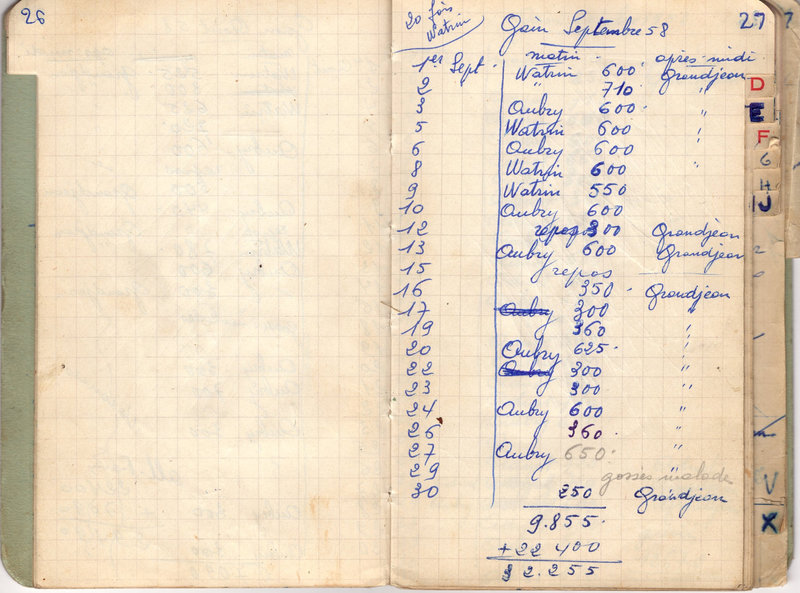 26
20 fois
Watrin
Gain Septembre 58
27
matin après-midi
1er Sept. Watrin 600 Grandjean
2 " 710 "
3 Aubry 600 "
5 Watrin 600 "
6 Aubry 600
8 Watrin 600 "
9 Watrin 550
10 Aubry 600
12 repos 300 Grandjean
13 Aubry 600 Grandjean
15 repos
16 350 Grandjean
17 Aubry 300 "
19 360 "
20 Aubry 625 "
22 Aubry 300 "
23 300 "
24 Aubry 600 "
26 360 "
27 Aubry 650 "
29 " gosses malade
30 250 Grandjean
9.855
+22 400
32.255
D
E
F
G
H
IJ
V
X